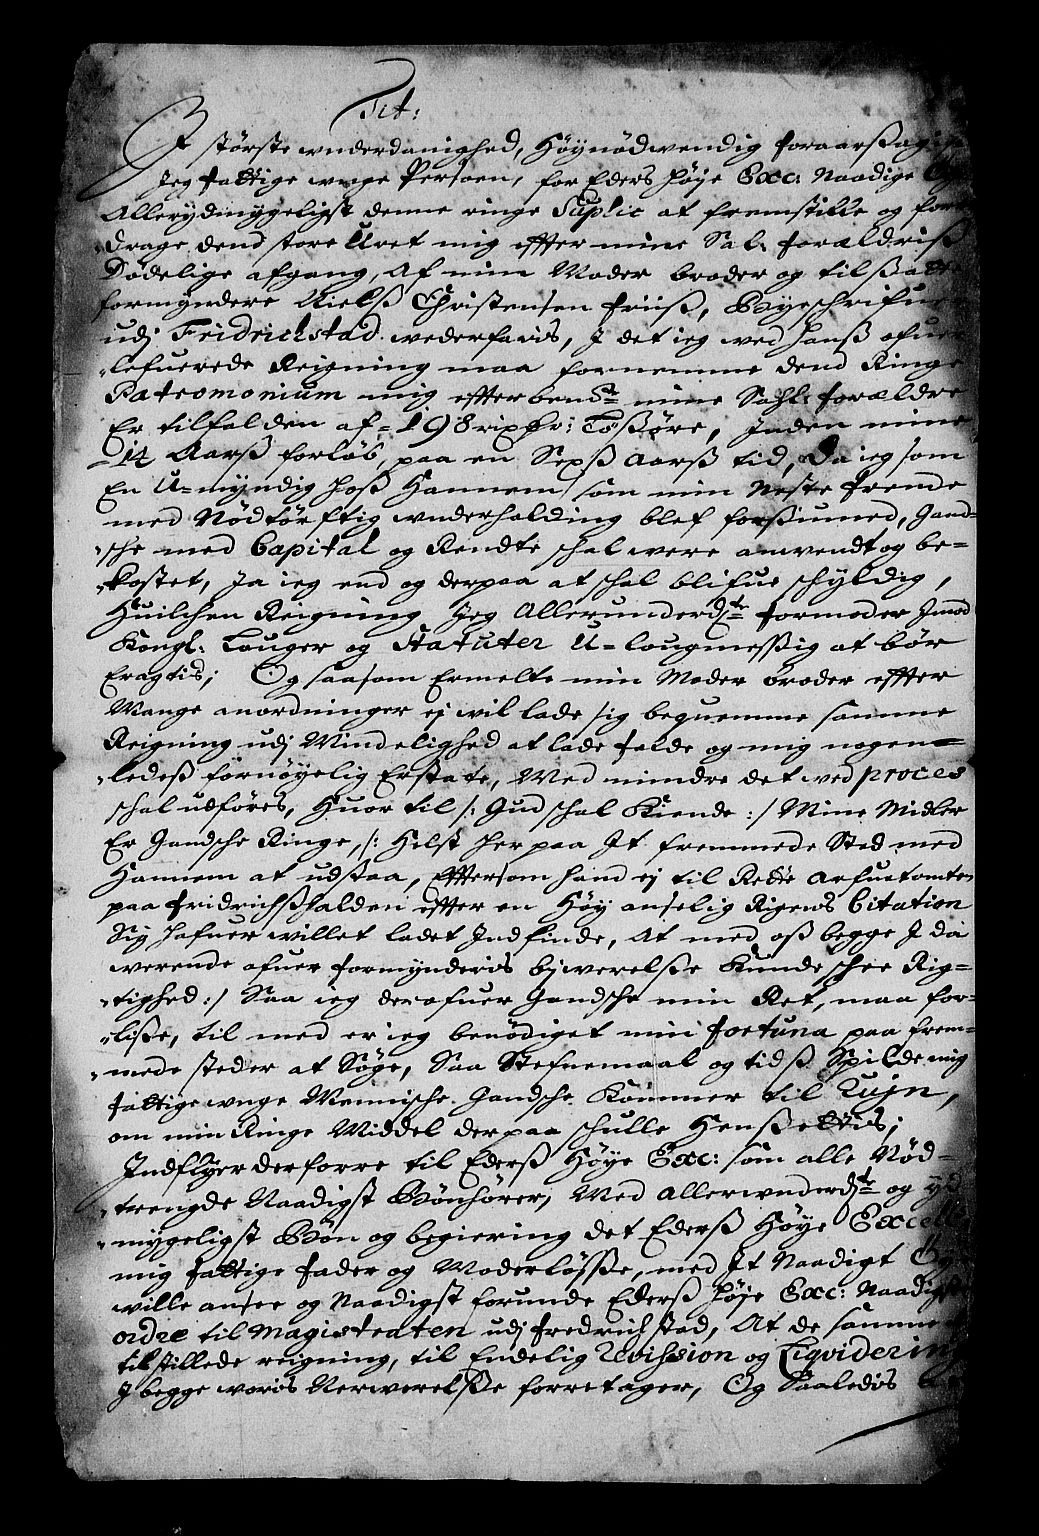 Tit:
I største underdanighed, Høynødwendig foraarsagis
Jeg fattige unge Persoen, for Eders høje Exc: Naadige
Allerydmygeligst denne ringe Suplic at fremstille og fore
drage, dend store Uret mig effter mine Sal. forældriss
Dødelige afgang, Af min Moder broder og tilsatte
formyndere Nielss Christensen friiss, Byeschrifuer
udj Fridrichstad wederfaris, J det ieg wed hanss ofuer
lefuerede Reigning maa fornemme dend Ringe
Patromonium mig effter bem.te mine Sahl: forældre
Er tilfalden af = 198 rixdr: 10 ssøre, Inden mine
14 Aarss forløb, paa en Sexss Aarss tid, Da ieg som
En U=myndig hoss Hannem som min Neste frende
med Nødtørfftig underholding blef forsiuned, Gand=
sche med Capital og Rendte schal were anwendt og be=
kostet, Ja ieg end og derpaa at schal blifue schyldig,
Huilchen Reigning Jeg Allerunderd.ste formoder Jmod
Kongl: Louger og Statuter U=lougmessig at bør
Eragtis; Og saasom Ermelte min Moder broder effter
Mange anordninger ej wil lade sig bequemme samme
Reigning udj Mindelighed at lade falde og mig nogen=
ledess fornøyelig Erstate, Med mindre det wed proces
schal udføres, Huor til /: Gud schal Kiende :/ Mine Midler
Er Gandsche Ringe, /: Helst her paa It fremmede Sted med
Hannem at udstaa, Efftersom hand ej til Rette Arfuetomten
paa fridrichsshalden effter en Høy anselig Rigens Citation
Sig hafuer willet ladet Indfinde, At med oss begge J da
werende ofuer formynderis bjwerelsse Kunde schee Rig=
tighed :/ Saa ieg derofuer Gandsche min Ret, maa for=
lisse, til med er ieg benødiget min fortuna paa frem=
mede steder at Søge, Saa Stefnemaal og tidss Spilde mig
fattige unge Mennische Gandsche Kommer til Ruin,
om min Ringe Middel derpaa schulle Henssettis;
Indflyer derforre til Ederss Høye Exc: som alle Nød=
trengde Naadigst Bønhører, Med allerunderd.ste og yd
mygeligst Bøn og begiering det Ederss Høye Excell
mig fattige fader og Moderløsse, med It Naadigt
wille ansee og Naadigst forunde Ederss høje Exc: Naadigste
ordre til Magistraten udj fredrichstad, At de samme
tilstillede reigning, til Endelig Revission og Liqvidering
J begge woris Nerwerelsse forretager, Og Saaledis